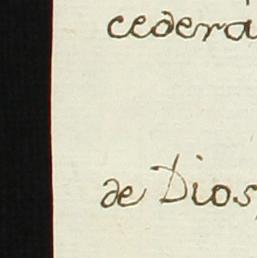 cedera
de Dios,